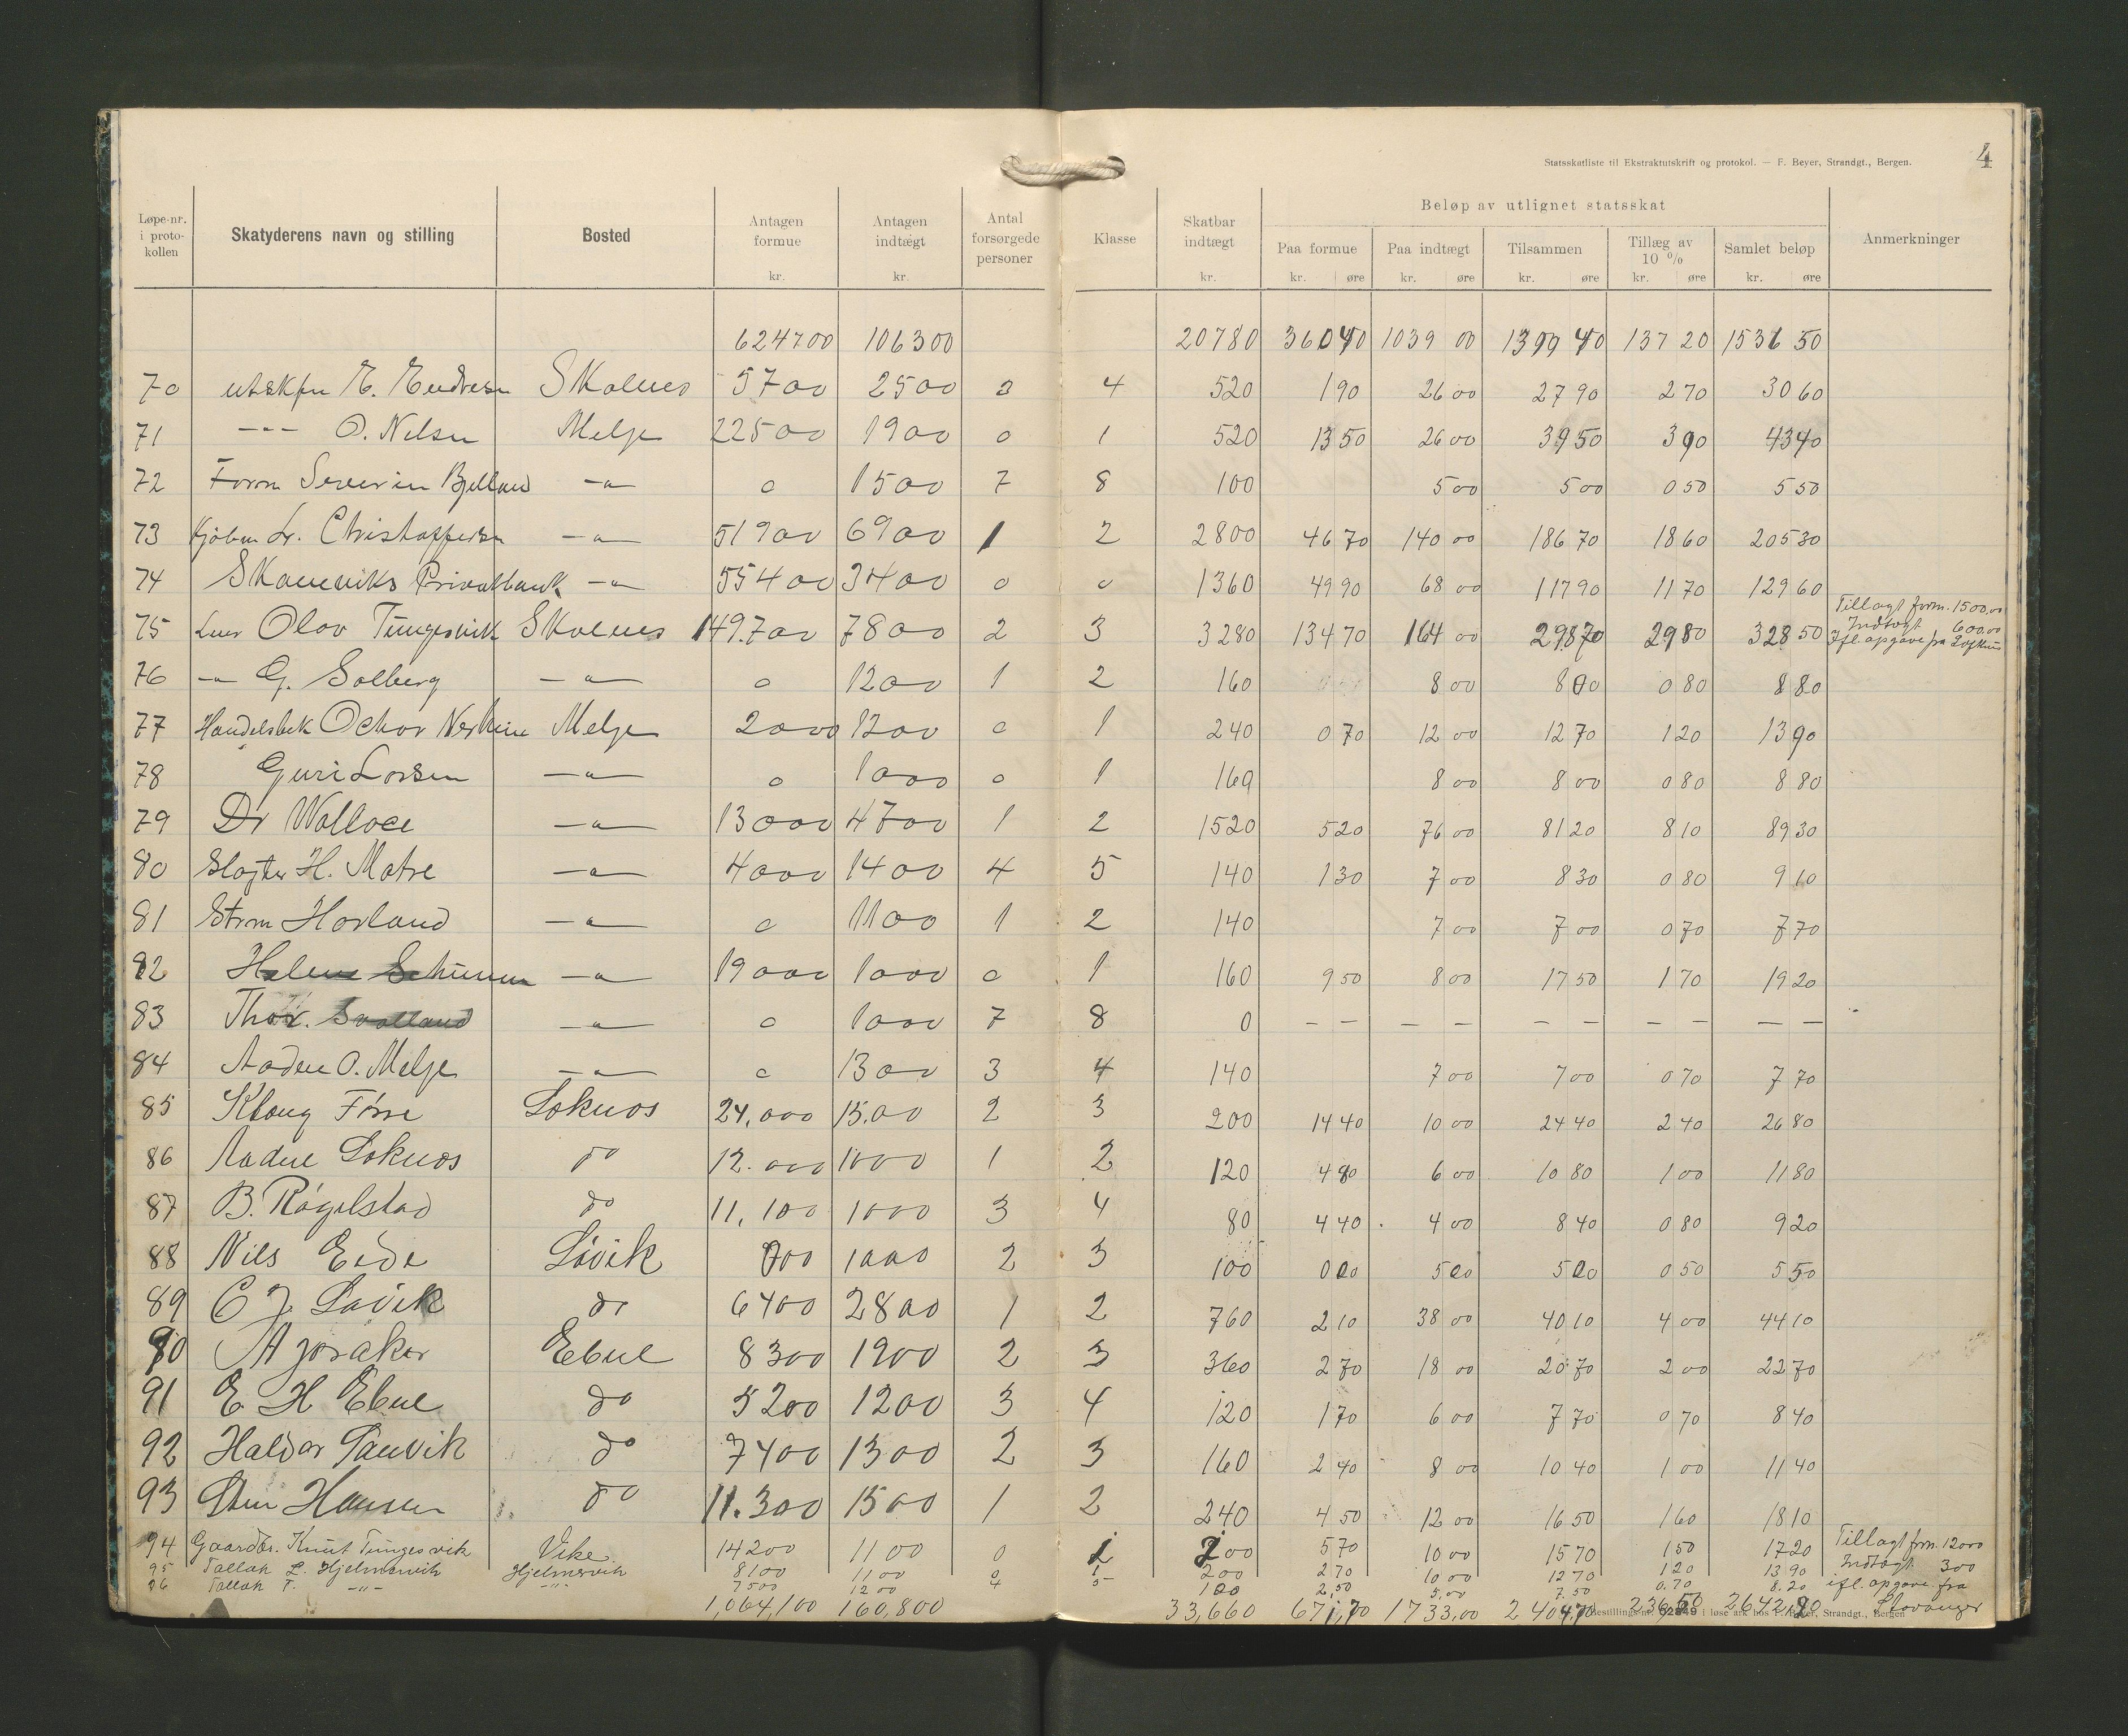 Statsskatliste til Ekstraktutskrift og protokol. — F. Beyer, Strandgt., Bergen. 4
Løpe-nr. i proto-kollen Skatyderens navn og stilling Bosted Antagen formue kr. Antagen indtægt kr. Antal forsørgede personer Klasse Skatbar indtægt kr. Beløp av utlignet statsskat Paa formue kr. øre Paa indtægt kr. øre Tilsammen kr. øre Tillæg av 10 % kr. øre Samlet beløp kr. øre Anmerkninger
624700 106300 20780 360 40 1039 00 1399 40 137 20 1536 50
70 utskfm E. Endresen Skaanes 5700 2500 3 4 520 1 90 26 00 27 90 2 70 30 60
71 -"- O. Nelsen Melje 22500 1900 0 1 520 13 50 26 00 39 50 3 90 43 40
72 Form Severin Bjelland -"- 0 1500 7 8 100 5 00 5 00 0 50 5 50
73 Kjøbm Chr. Christoffersen -"- 51900 6900 1 2 2800 46 70 140 00 186 70 18 60 205 30
74 Skaaneviks Privatbank -"- 55400 3400 0 0 1360 49 90 68 00 117 90 11 70 129 60
75 Olav Tungesvik 149.700 7800 2 3 3280 134 70 164 00 298 70 29 80 328 50 Tillagt form. 1500,00 Indtægt 600,00 Ifl. opgave fra
76 -"- G. Solberg -"- 0 1200 1 2 160 8 00 8 00 0 80 8 80
77 Handelsbetj. Melje 2000 1200 0 1 240 0 70 12 00 12 70 1 20 13 90
78 Guri Larsen -"- 0 1000 0 1 160 8 00 8 00 0 80 8 80
79 Dr Wallace -"- 13000 4700 1 2 1520 5 20 76 00 81 20 8 10 89 30
80 Slagter H. Matre -"- 4000 1400 4 5 140 1 30 7 00 8 30 0 80 9 10
81 Strm Havland -"- 0 1100 1 2 140 7 00 7 00 0 70 7 70
82 Helene -"- 19000 1000 0 1 160 9 50 8 00 17 50 1 70 19 20
83 Thor. -"- 0 1000 7 8 0 — — — — — — — — — —
84 Aadne O. Melje -"- 0 1300 3 4 140 7 00 7 00 0 70 7 70
85 Førre Løknes 24.000 15.00 2 3 200 14 40 10 00 24 40 2 40 26 80
86 Aadne Løknes do 12.000 1000 1 2 120 4 80 6 00 10 80 1 00 11 80
87 B. Røgelstad do 11.100 1000 3 4 80 4 40 4 00 8 40 0 80 9 20
88 Nils Eide Løvik 700 1000 2 3 100 0 00 5 00 5 00 0 50 5 50
89 C J Løvik do 6400 2800 1 2 760 2 10 38 00 40 10 4 00 44 10
90 A Jøsaker Ebne 8300 1900 2 3 360 2 70 18 00 20 70 2 00 22 70
91 E H Ebne do 5200 1200 3 4 120 1 70 6 00 7 70 0 70 8 40
92 Haldor Sanvik do 7400 1300 2 3 160 2 40 8 00 10 40 1 00 11 40
93 Sten Hansen do 11.300 1500 1 2 240 4 50 12 00 16 50 1 60 18 10
94 Gaardbr. Knut Tungesvik Vike 14200 1100 0 1 200 5 70 10 00 15 70 1 50 17 20 Tillagt frm. 12000
95 Tallak L. Hjelmervik Hjelmervik 8100 1100 0 1 200 2 70 10 00 12 70 1 20 13 90 Indtægt 300
96 Tallak T. -"- -"- 7500 1200 4 5 100 2,50 5,00 7.50 0.70 8.20 ifl. opgave fra
1,064,100 160,800 33,660 671,70 1733,00 2404,70 236,50 2642,20 Stavanger
i løse ark hos F. Beyer, Strandgt., Bergen